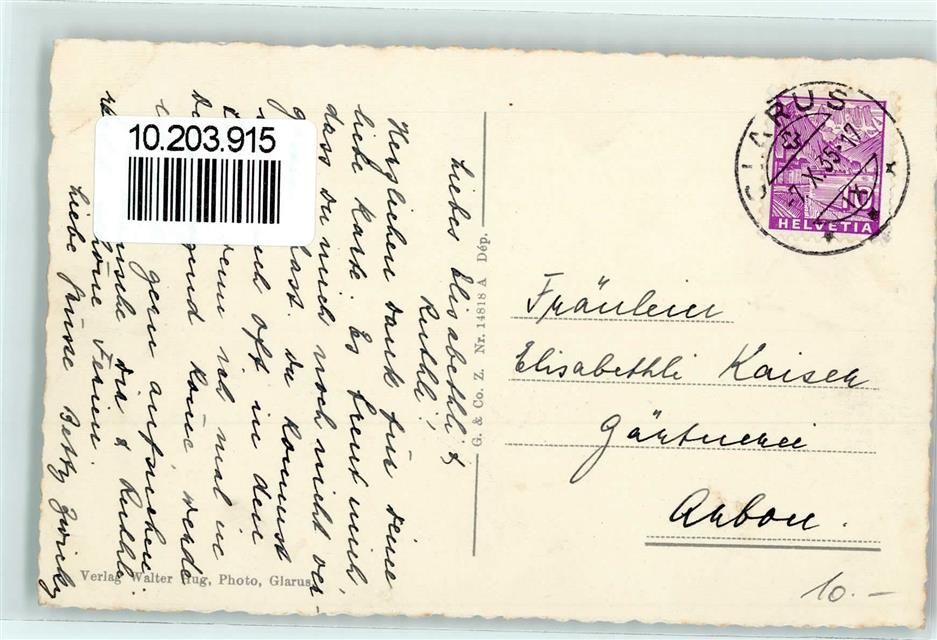 10.203.915
Liebes Elisabethli &
Ruthli!
Herzlichen Dank für deine
liebe Karte. Es freut mich,
dass du mich noch nicht ver-
hast. Du kommst
oft in den
wenn ich mal in
komme werde
gern aufsuchen
dir & Ruthli
Ferien.
Liebe Grüsse Betty Zwicky
Verlag Walter Hug, Photo, Glarus
G. & Co. Z. Nr. 14818 A Dép.
GLARUS
7.X.35-17
HELVETIA
Fräulein
Elisabethli Kaiser
Gärtnerei
Arbon.
10.-